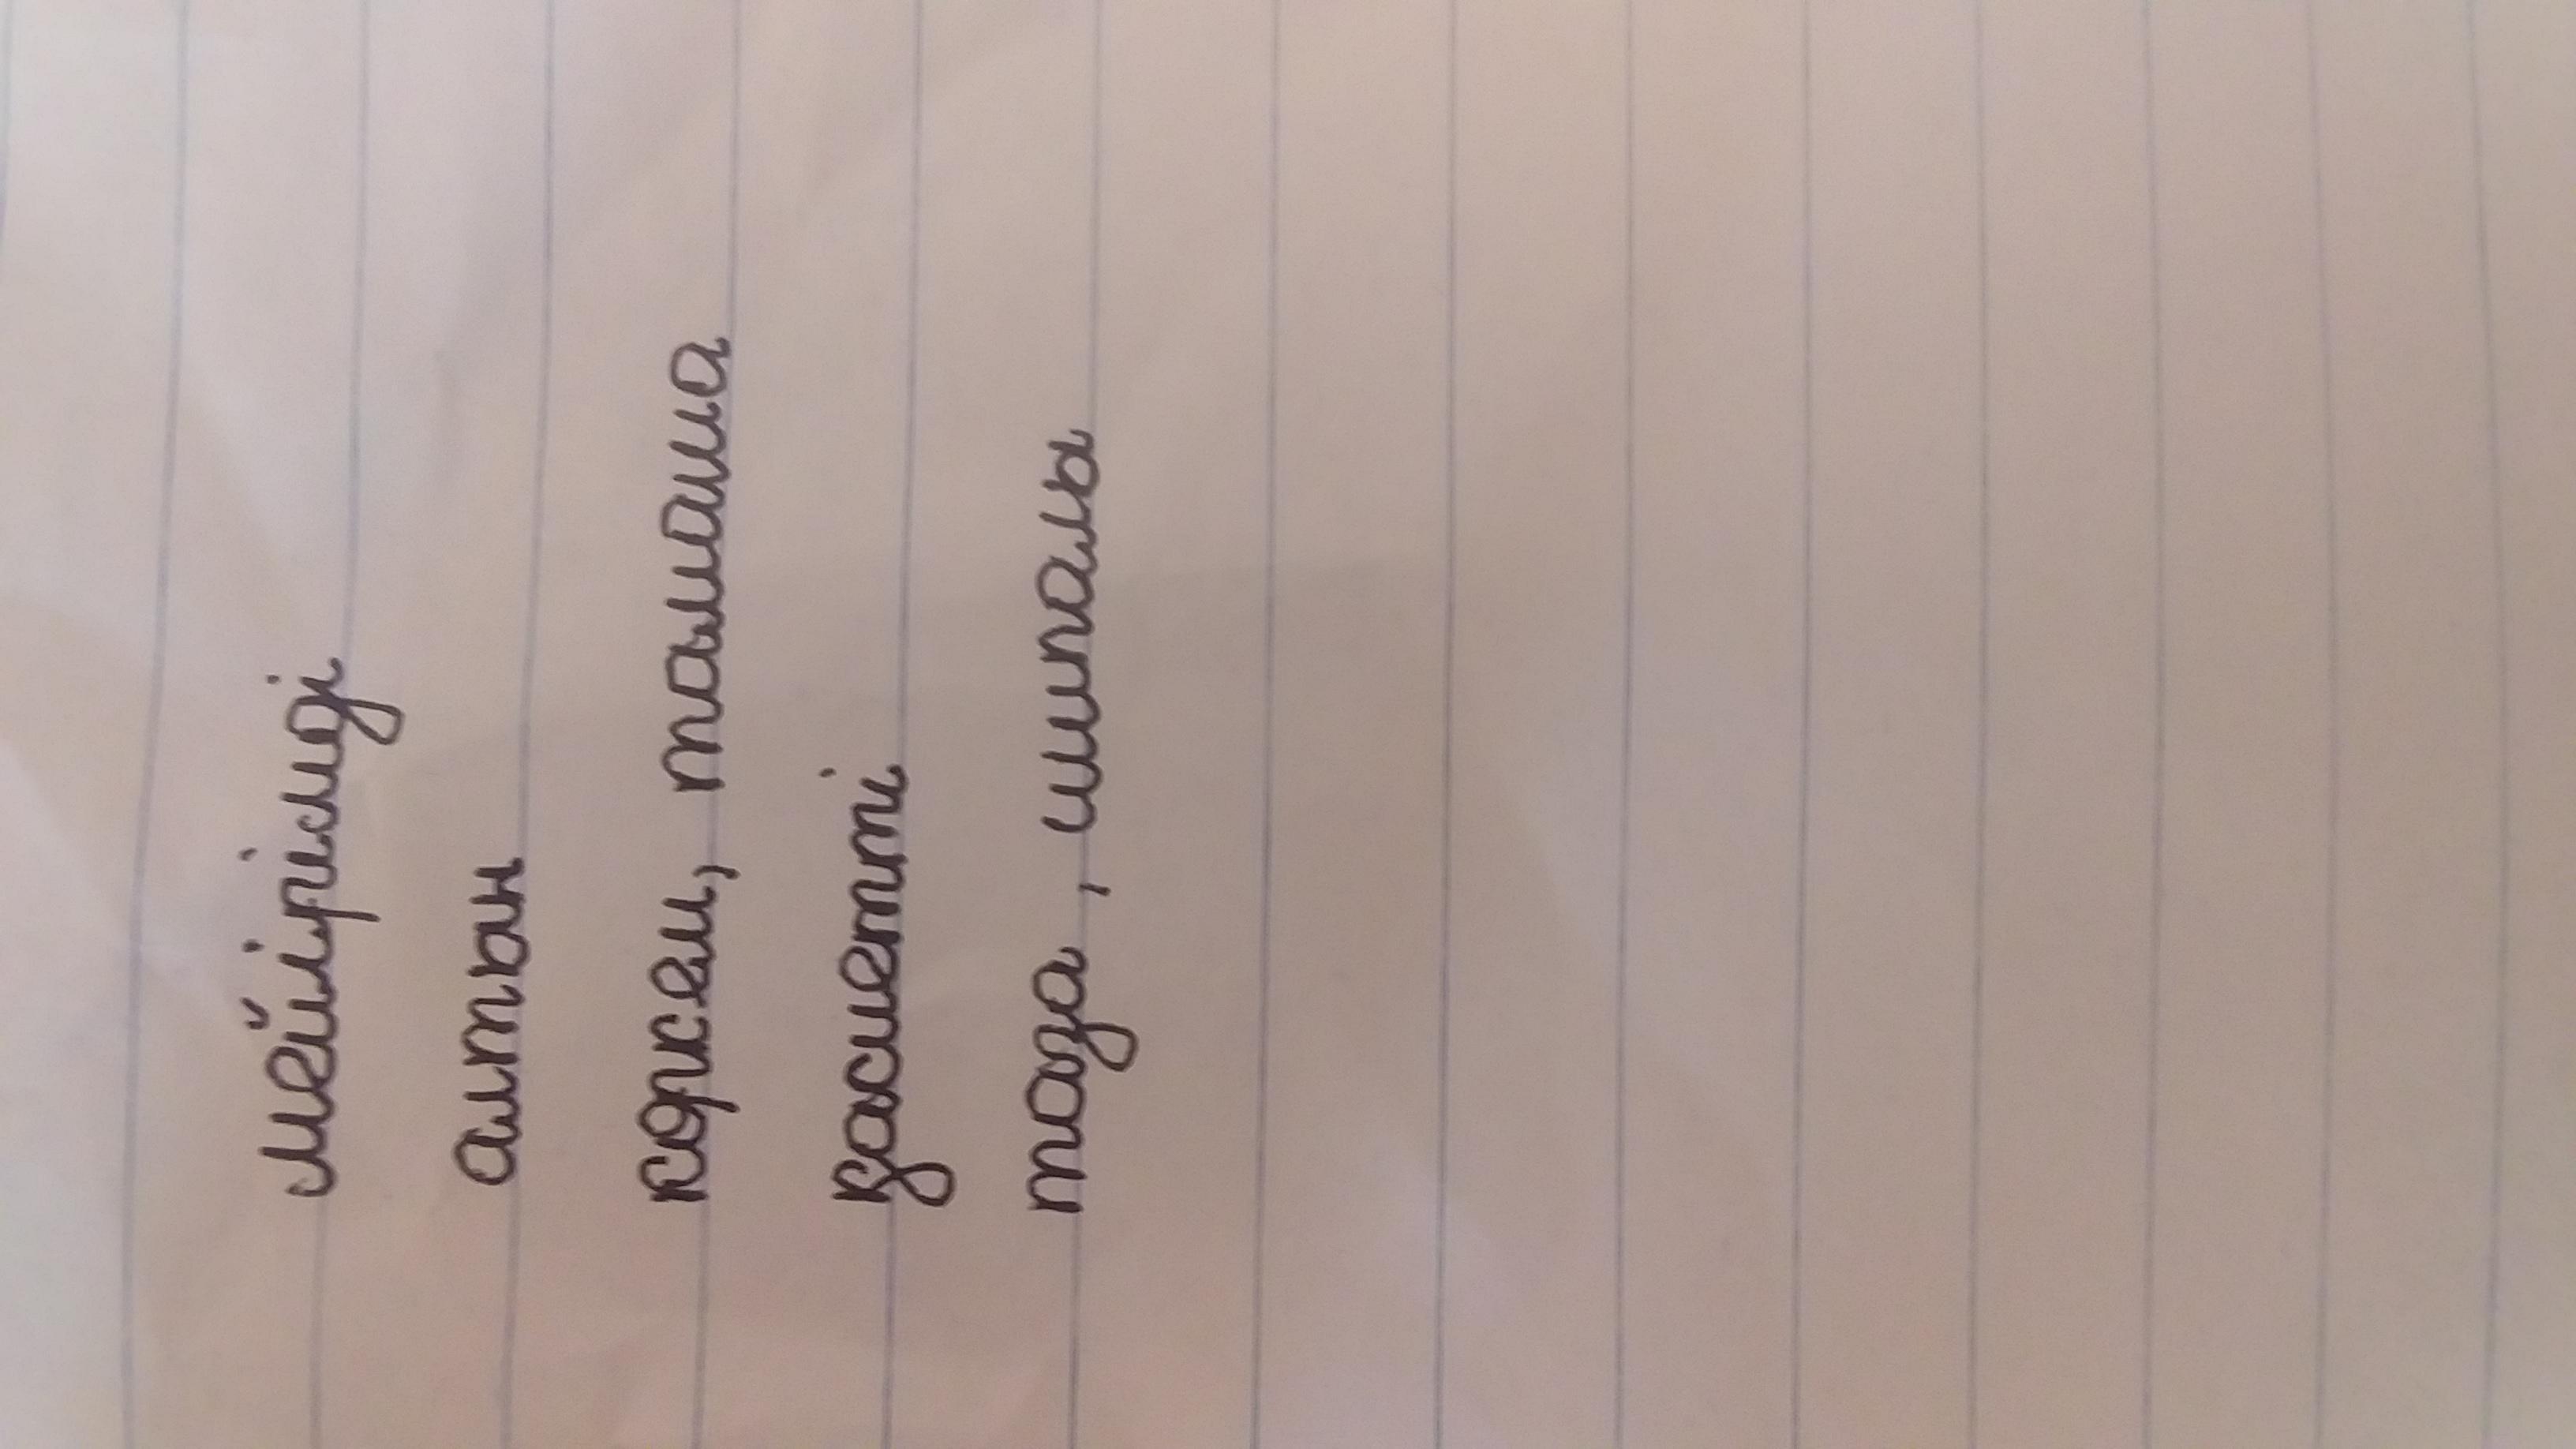 мейірімді
алтын
көрсем, тамаша
қасиетті
таза, шипалы